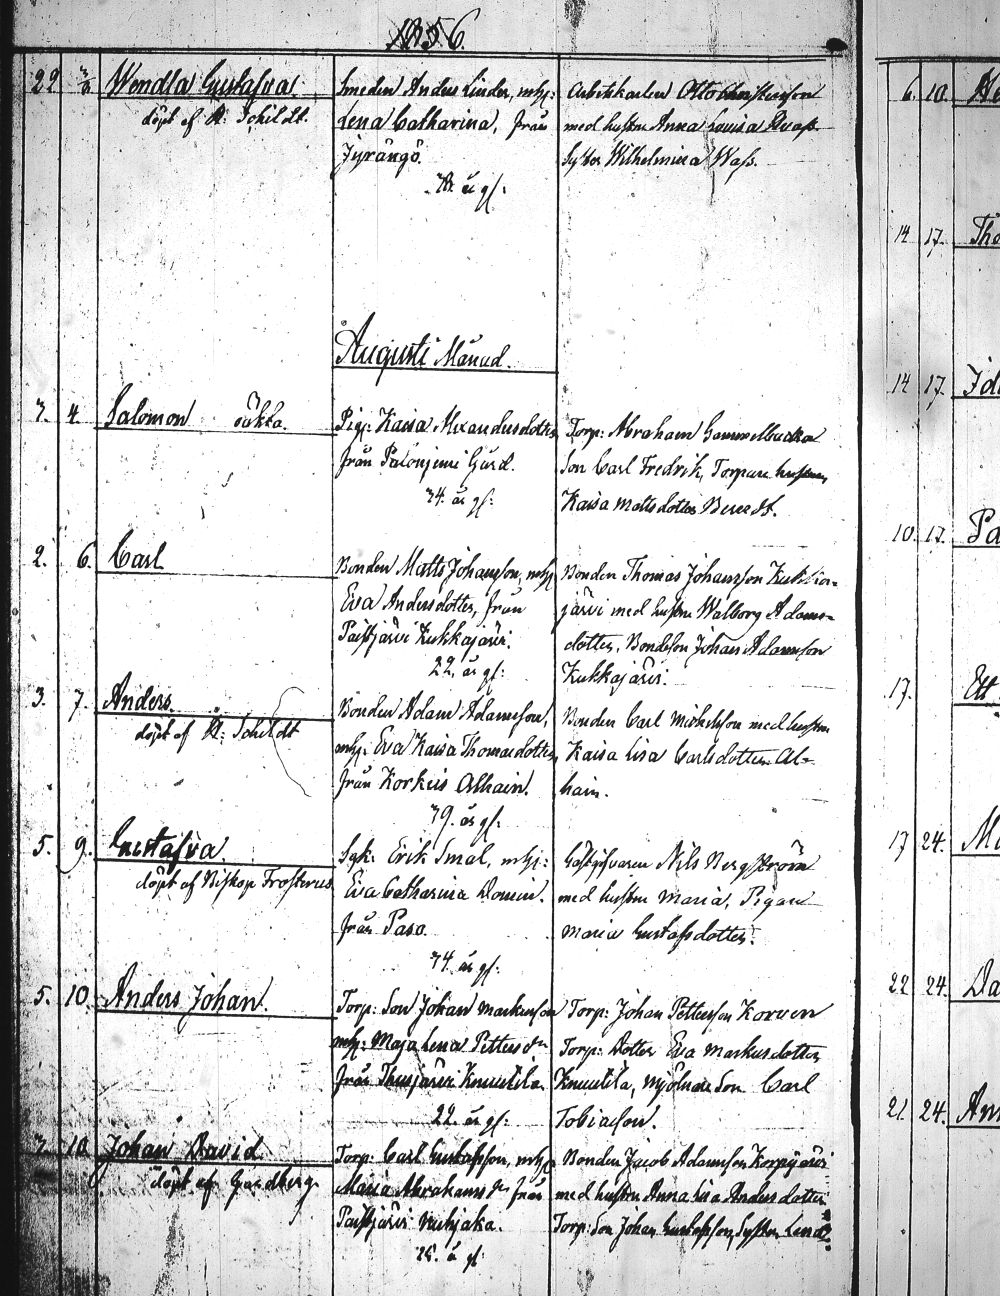 1856.
22 3/8 Wendla Gustafva
döpt af A: Schildt.
Smeden Anders Linder, mhj:
Lena Catharina, från
Jyrängö.
38. år gl:
Arbetskarlen Otto
med hustru Anna Lovisa
Wilhelmina Wass.
Augusti Månad.
3. 4. Salomon oäkta.
Pig: Kaisa Alexandersdotter
från Palonjemi Gård.
34. år gl:
Torp: Abraham
Son Carl Fredrik, Torpare hustrun
Kaisa Mattsdotter
2. 6. Carl
Bonden Matts Johansson, mhj
Eva Andersdotter, från
Paistjärvi Kukkajärvi.
22. år gl:
Bonden Thomas Johansson
järvi med hustru Walborg Adams-
dotter, Bondeson Johan Adamsson
Kukkajärvi.
3. 7. Anders.
döpt af A: Schildt
Bonden Adam Adamsson,
mhj: Eva Kaisa Thomasdotter
från Korkeis Alhain.
39. år gl:
Bonden Carl Mickelsson med hustru
Kaisa Lisa Carlsdotter Al-
hain.
5. 9. Gustafva
döpt af Biskop Frosterus.
Erik Smal, mhj:
Eva Catharina
från Paso.
34. år gl:
Gästgifvaren Nils Bergström
med hustru Maria, Pigan
Maria Gustafsdotter.
5. 10. Anders Johan.
Torp: Son Johan Markusson
mhj: Maja Lena Petters dr
från Thusjärvi Knuutila.
22. år gl:
Torp: Johan Pettersson Korven
Torp: Dotter Eva Markusdotter
Knuutila, Mjölnare Son Carl
Tobiasson.
7. 10. Johan David
döpt af
Torp: Carl Gustafsson, mhj:
Maria Abrahams dr från
Paistjärvi
25. å gl:
Bonden Jacob Adamsson Korpijärvi
med hustru Anna Lisa Andersdotter
Torp: Son Johan Gustafsson, Syster Lena
6. 10.
14 17. Tho
14 17. Ida
10. 17. Pa
17. Ett
17 24.
22 24. Da
21 24. Ann